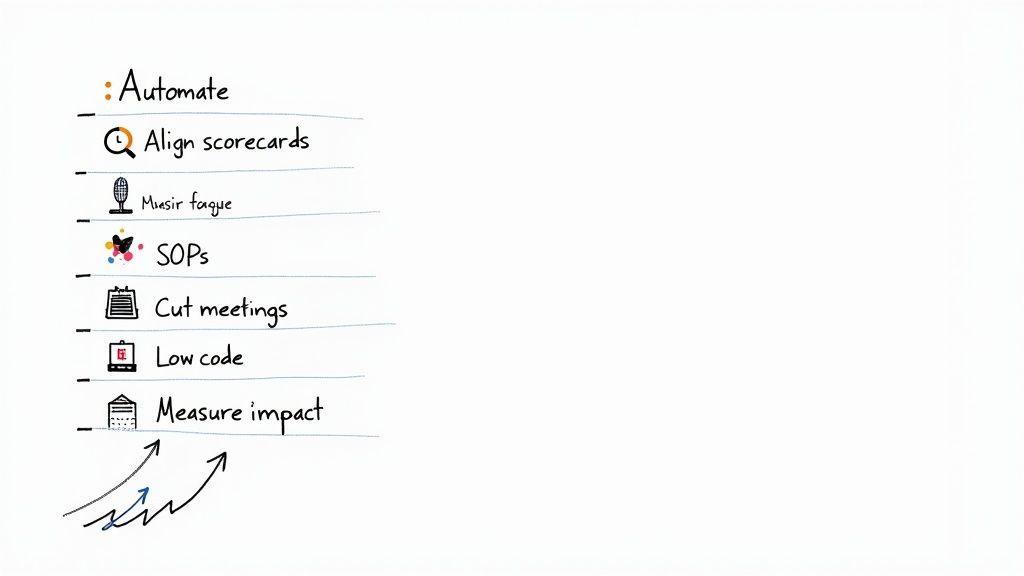 Automate
Align scorecards
SOPs
Cut meetings
Low code
Measure impact